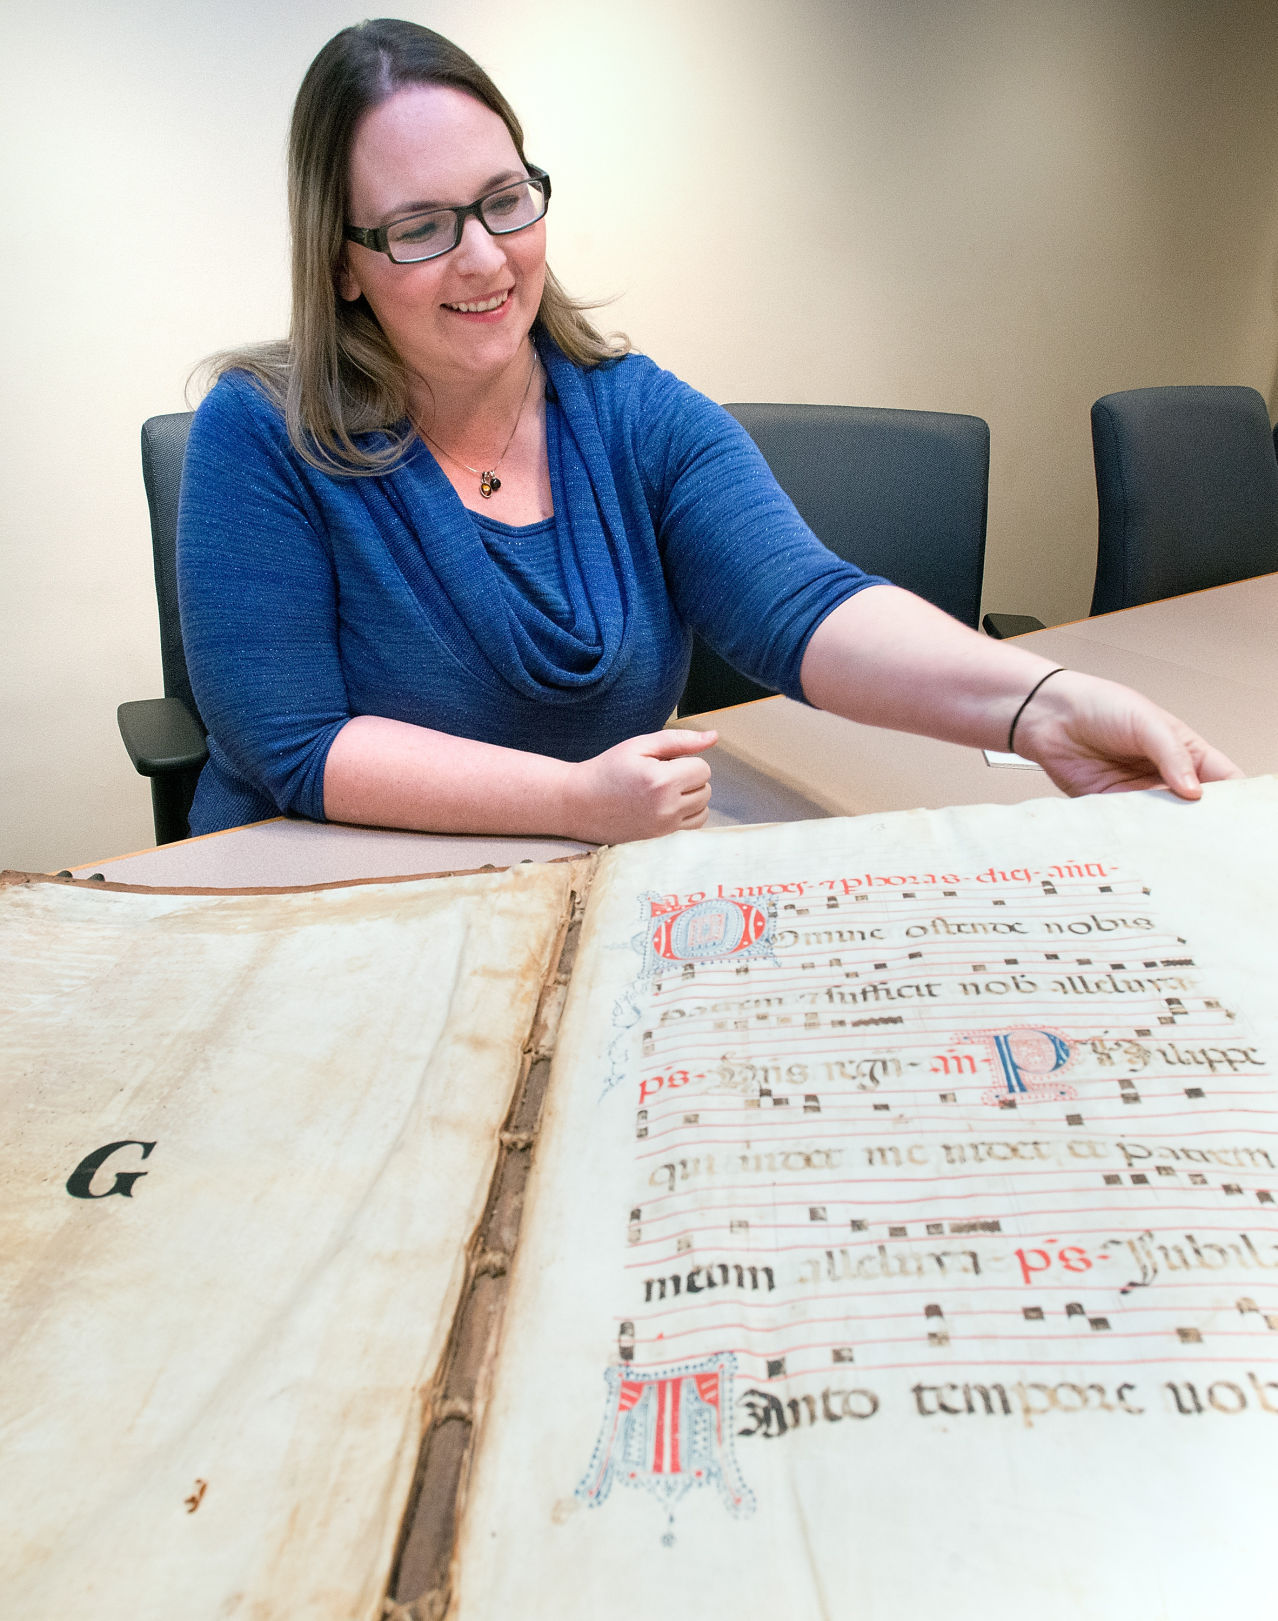 G
Ad laudes · ⁊ p horas · dieſ · añა ·
Domine oſtende nobis
patrem ⁊ ſufficit nob̄ alleluya
p̄s · Dñs regñ · añ · Philippe
qui uidet me uidet et patrem
meum alleluya · p̄s · Jubila
Tanto tempore uob